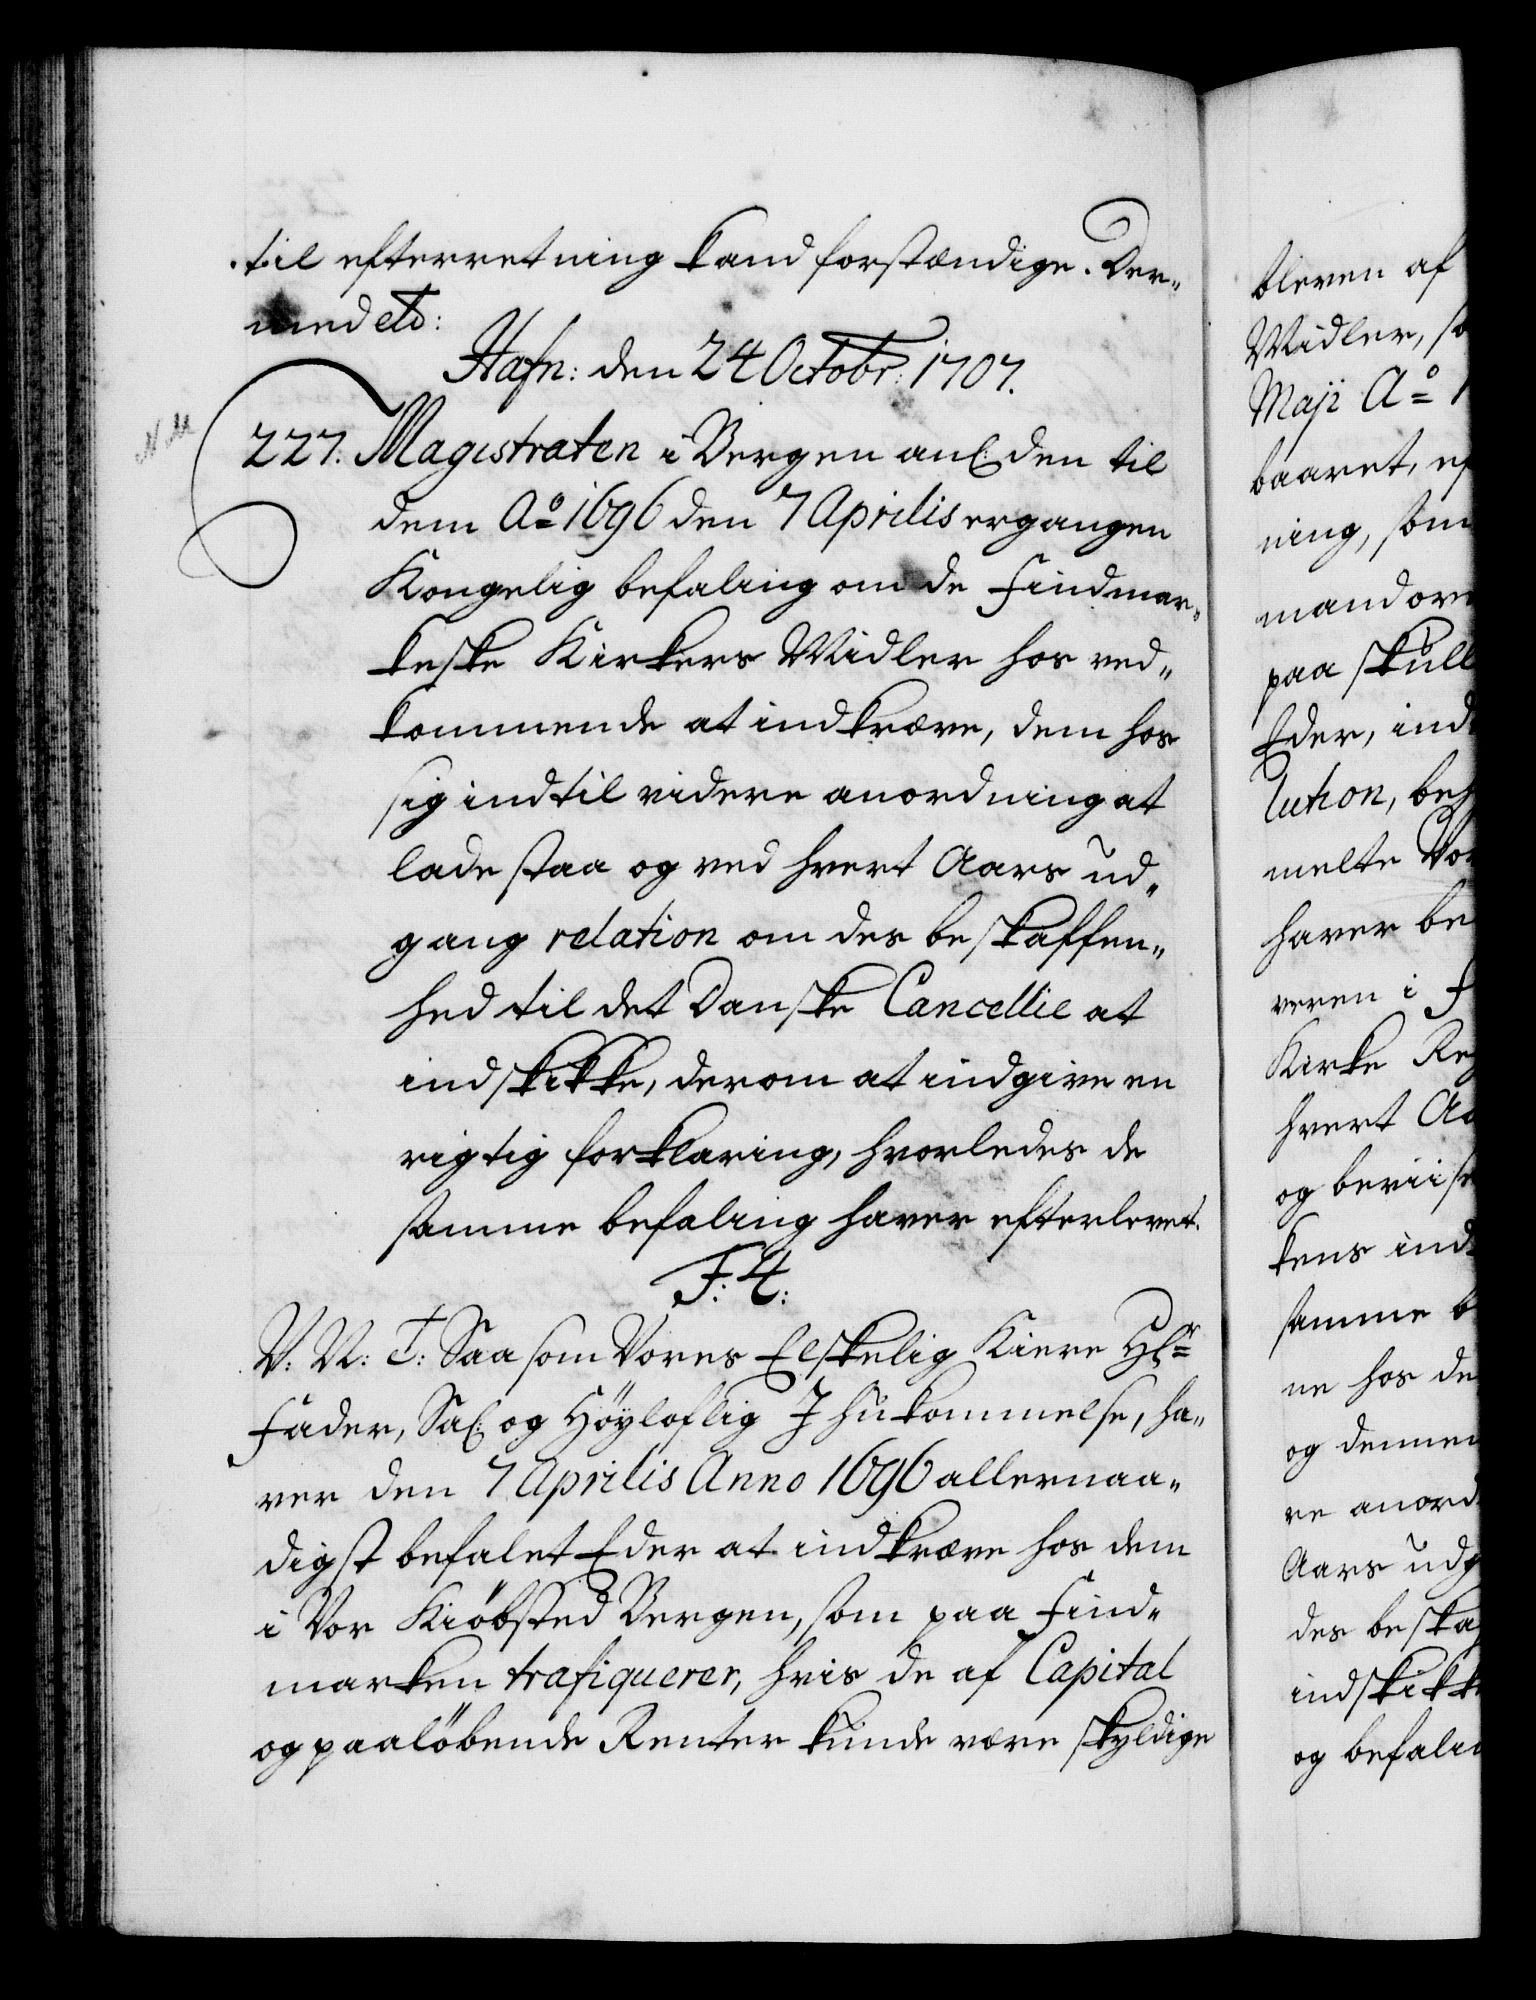 til efterretning kand forstændige. Der„
med etc:
Hafn: den 24 Octobr: 1707.
227. Magistraten i Bergen anl: den til
dem Ao 1696 den 7 Aprilis ergangen
Kongelig befaling om de Findmar„
keske Kirkers Midler hos ved„
kommende at indkræve, dem hos
sig indtil videre anordning at
lade staa og ved hvert Aars ud„
gang relation om des beskaffen„
hed til det Danske Cancellie at
indskikke, derom at indgive en
rigtig forklaring, hvorledes de
samme befaling haver efterlevet.
F: 4:
V: N: T: Saasom Vores Elskelig Kiere Hr
Fader, Sal: og Høyloflig Ihukommelse, ha„
ver den 7 Aprilis Anno 1696 allernaa„
digst befalet Eder at indkræve hos dem
i Vor Kiøbsted Bergen, som paa Find„
marken trafiquerer, hvis de af Capital
og paaløbende Renter kunde være skyldige
bleven af
Midler, so
Maji Ao 1
baaret, ef
ning, som
mand
paa skull
Eder, ind
lution, be
melte Vor
haver be
veren i F
Kirke Re
hvert Aa
og beviis
kens ind
samme b
ne hos de
og dennem
re anord
Aars udg
des beska
indskikk
og befalin